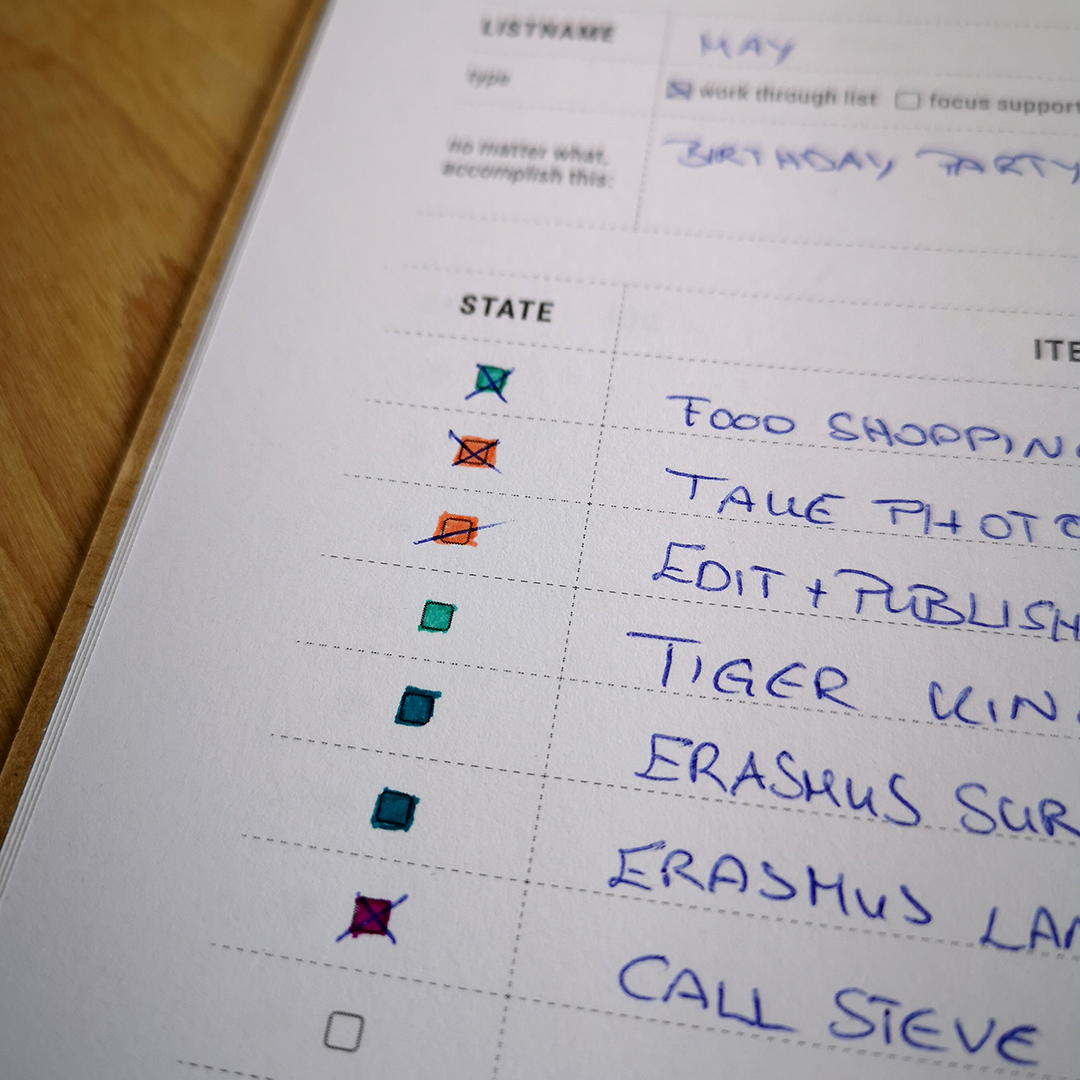 LISTNAME MAY
type work through list focus support
no matter what, BIRTHDAY PARTY
accomplish this:
STATE ITE
FOOD SHOPPING
TAKE PHOTO
EDIT + PUBLISH
TIGER KIN
ERASMUS SUR
ERASMUS LAN
CALL STEVE